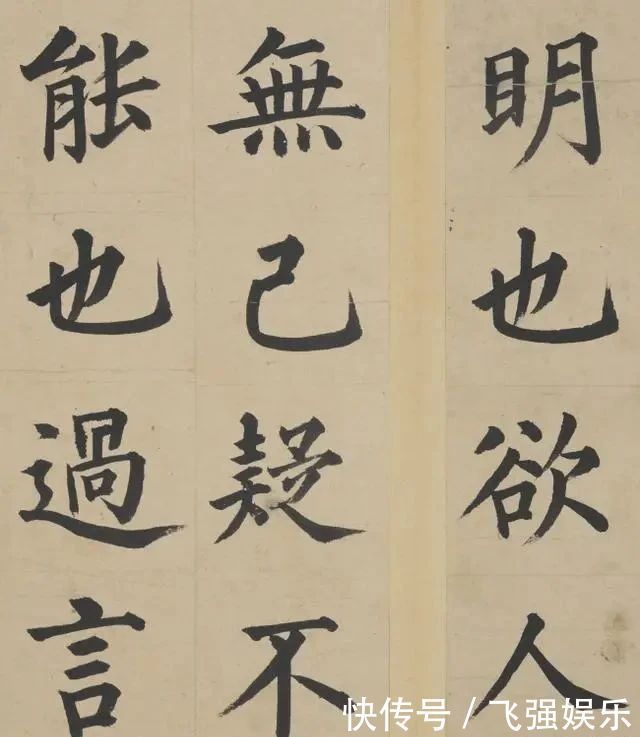 明也欲人
無己疑不
能也過言
快传号 / 飞强娱乐